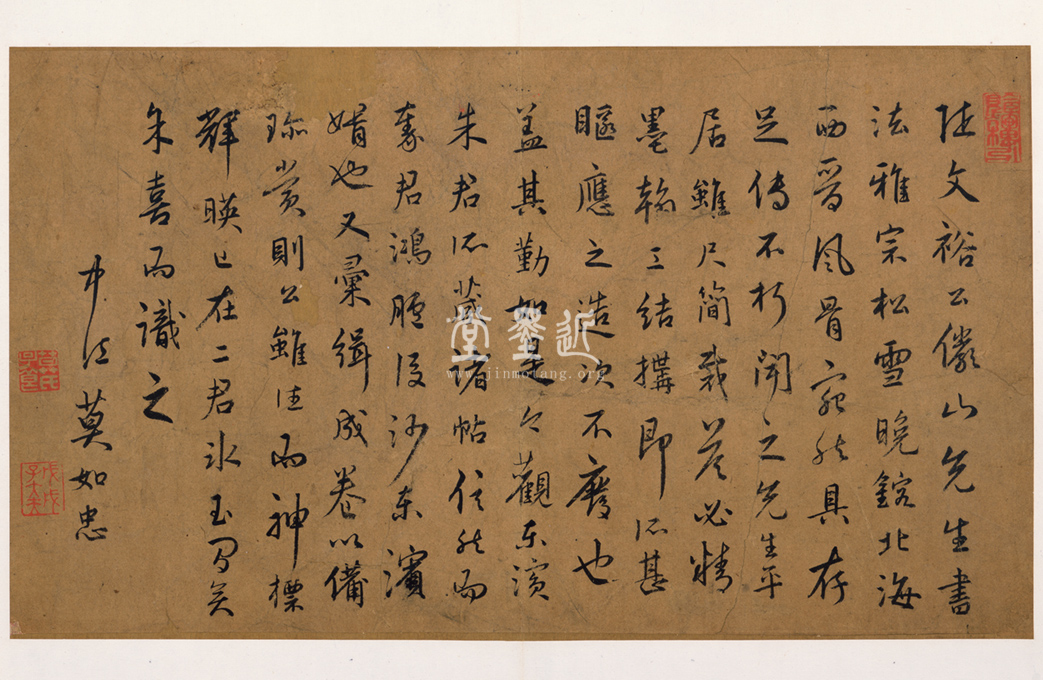 陸文裕公儼山先生書
法雅宗松雪晚鎔北海
西晉風骨宛然具存
足傳不朽聞之先生平
居雖尺簡裁答必精
墨翰三結搆即所甚
暱應之造次不廢也
蓋其勤如是今觀東濱
朱君所藏諸帖信然而
袁君鴻臚復沙東濱
婿也又彙緝成卷以備
珍賞則公雖往而神標
輝暎已在二君冰玉間矣
余喜而識之
中江莫如忠
近墨堂
www.jinmotang.org